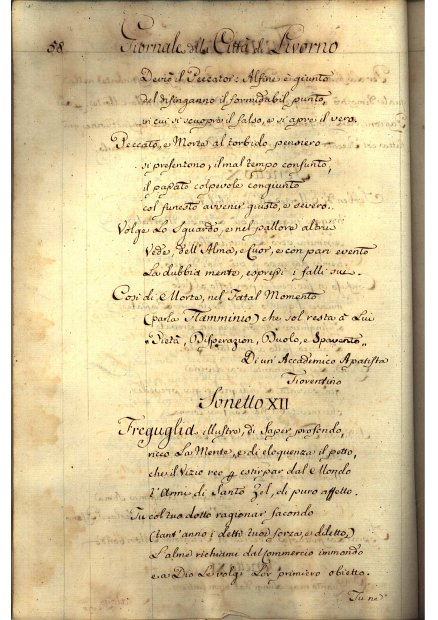 58. Giornale della Città di Livorno
Deviò il Peccator: Alfine è giunto
del disinganno il formidabil punto,
in cui si scuopre il falso, e si apre il vero.
Peccato, e Morte al torbido pensiero
si presentono, il mal tempo consunto,
il passato colpevole congiunto
col funesto avvenir giusto, e severo.
Volge Lo Sguardo, e nel pallore altrui
Vede, dell'Alma, e Cuor, e con pari evento
La dubbia mente, espressi i falli sui.
Così di Morte, nel Fatal Momento
(parla Flamminio) che sol resta à Lui
Pietà, Disperazion, Duolo, e Spavento.
Di un' Accademico Apatista
Fiorentino
Sonetto XII
Freguglia illustre, di Saper profondo,
ricco La Mente, e di eloquenza il petto,
che il Vizio reo p estirpar dal Mondo
t'Armi di Santo Zel, di puro affetto.
Tu col tuo dotto ragionar facondo
(tant' anno i detti tuoi forza, e diletto,)
L'alme richiami dal commercio immondo
e a Dio Le volgi Lor primiero obietto.
Tu ne